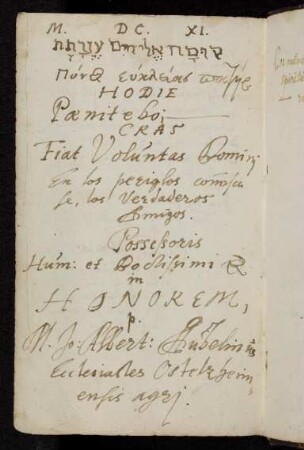 M. DC. XI.
קומה אלהים עזרתה
Πόνος εὐκλείας πατήρ
HODIE
Pœnitebo;
CRAS
Fiat Voluntas Domini
En los periglos connoscu
se, los Verdaderos
Amigos.
Possessoris
Hum: et Doctissimi
in
HONOREM,
p.
M. Jo: Albert: Hübelinus
Ecclesiastes Ostelzheim
ensis agrj.